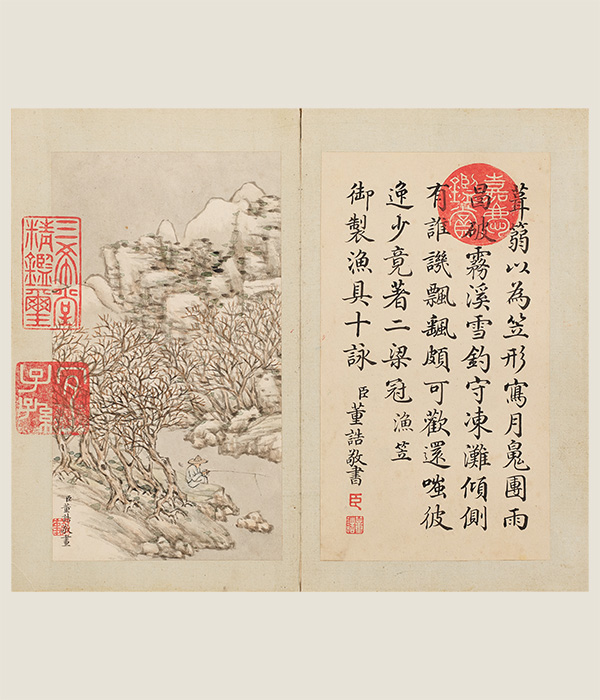 嘉慶鑑賞
葺篛以為笠形寫月團雨
冒破霧溪雪釣守凍灘傾側
有誰譏飄颻頗可歡還嗤彼
逸少竟著二梁冠 漁笠
御製漁具十詠
臣董誥敬書
臣
三希堂
精鑑璽
宜
子孫
臣董誥敬畫